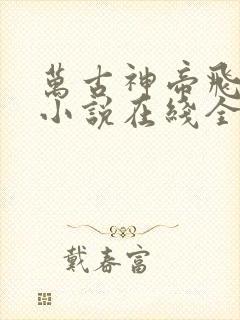 萬古神帝飛
小說在綫全
戴春富